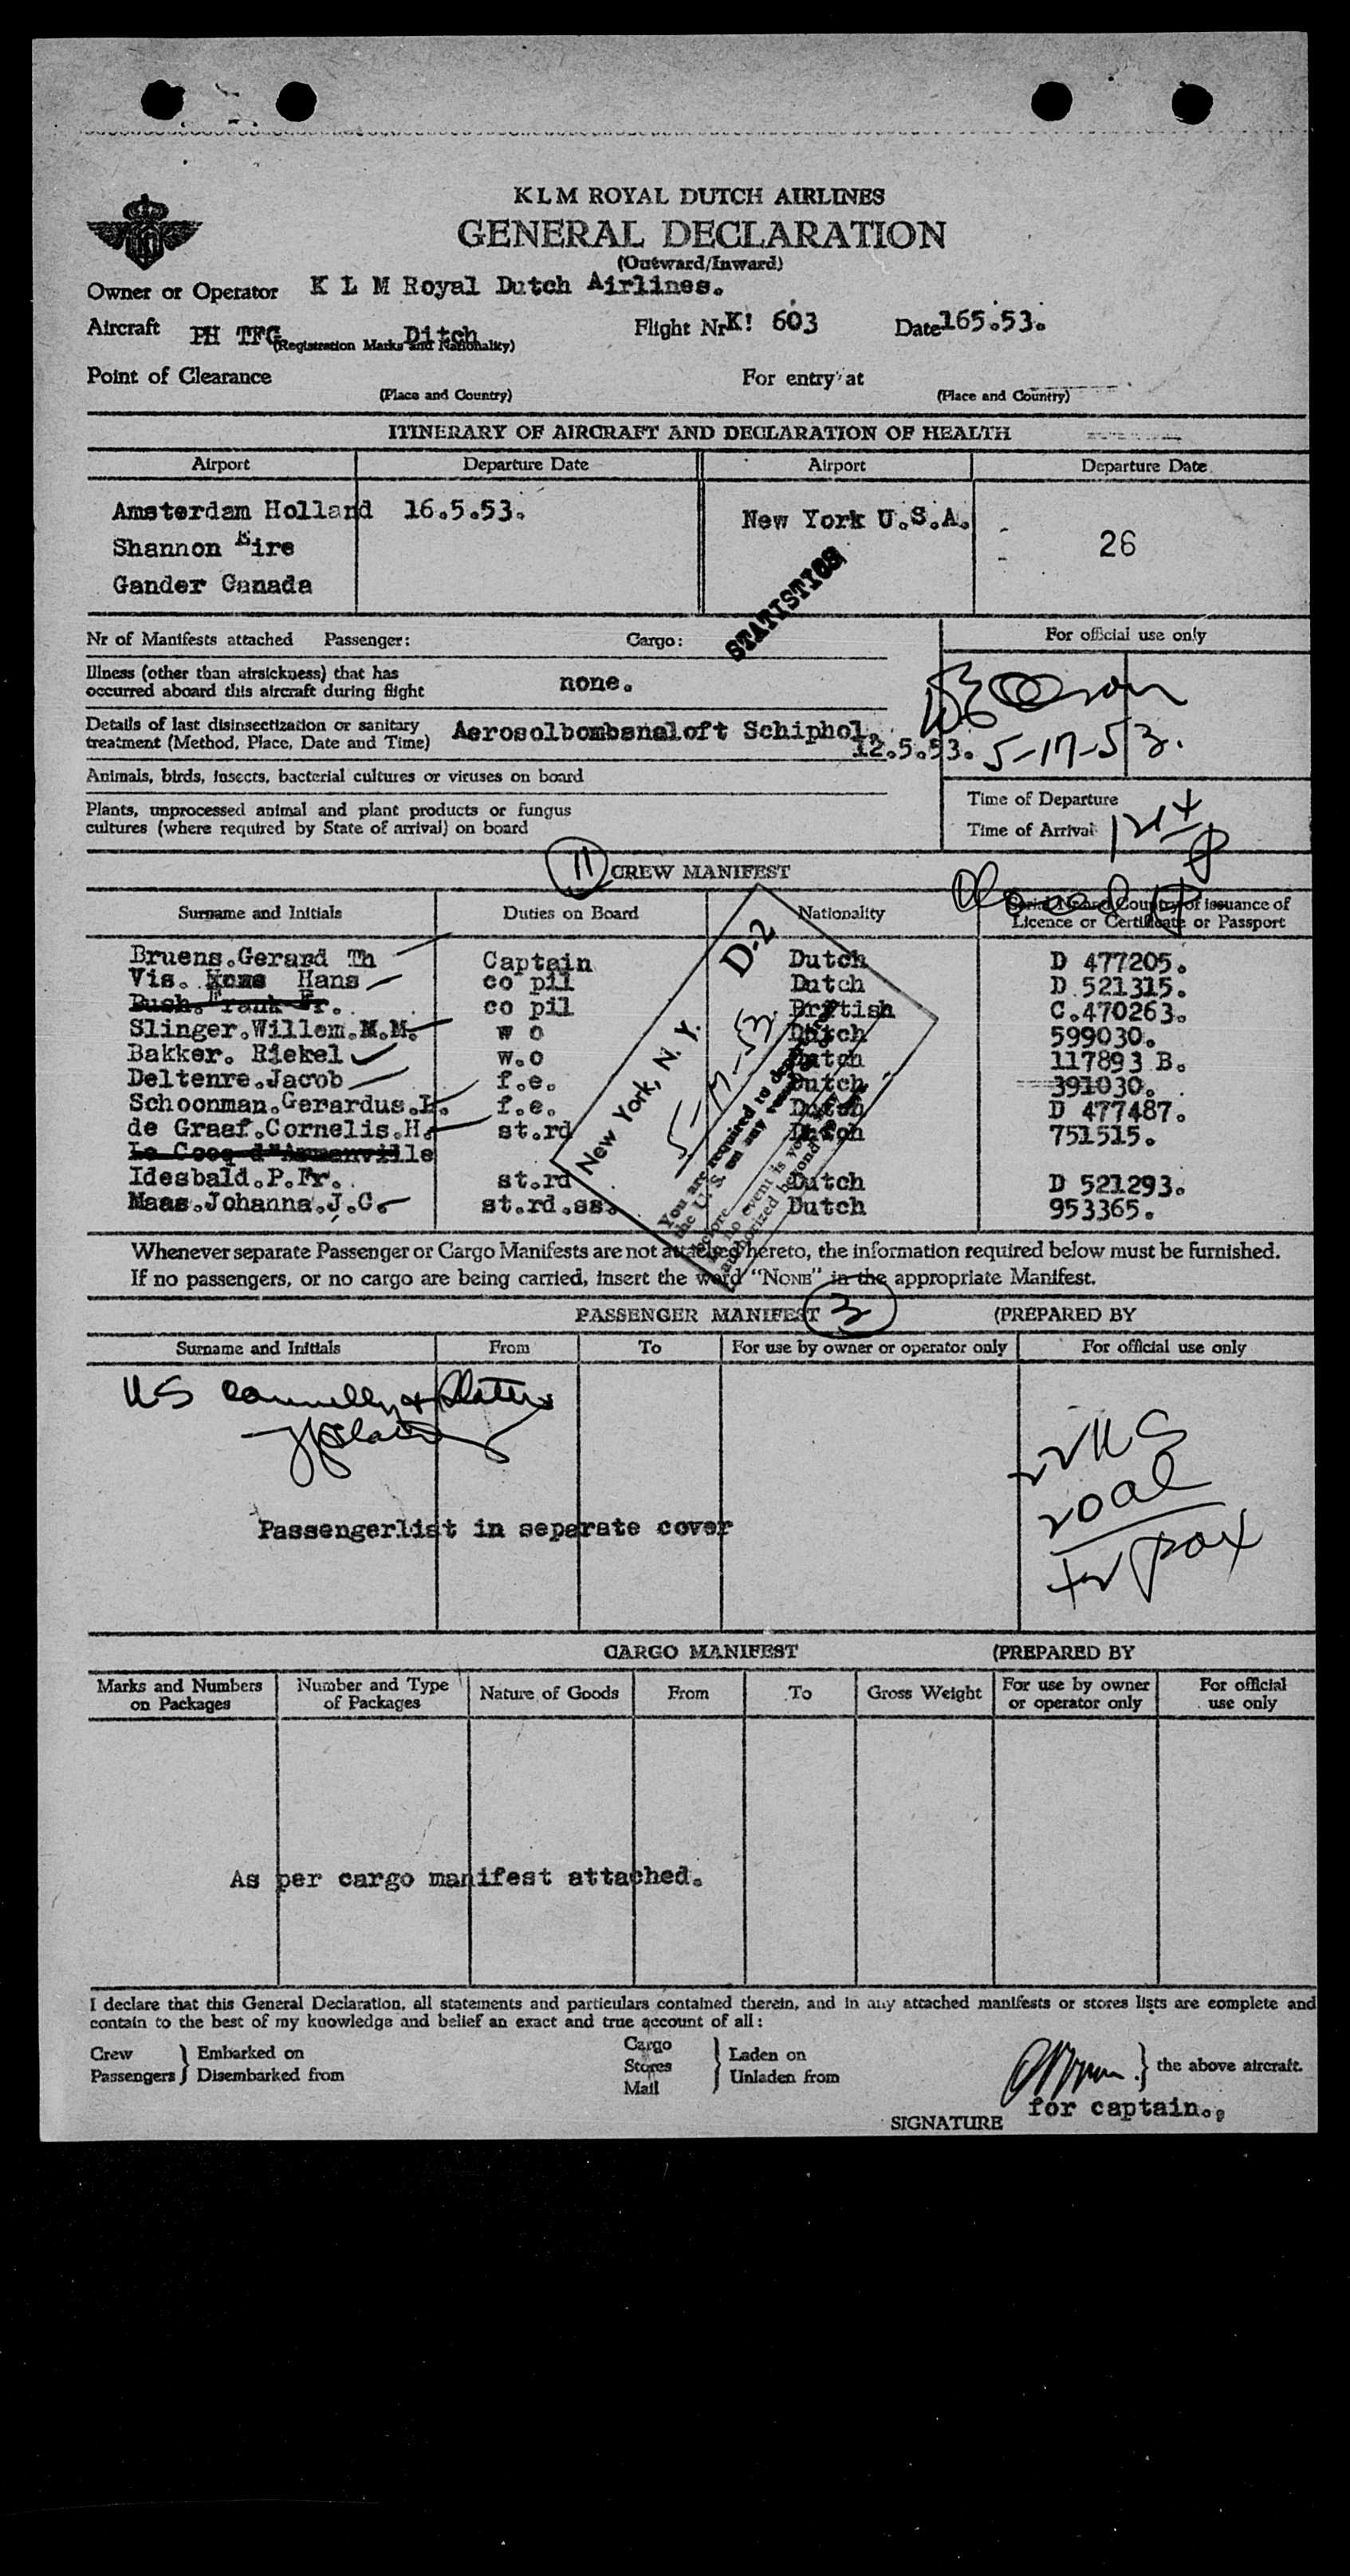 KLM ROYAL DUTCH AIRLINES
GENERAL DECLARATION
(Outward/Inward)
Owner or Operator K L M Royal Dutch Airlines.
Aircraft PH TFG Ditch Flight Nr K! 603 Date 165.53.
(Registration Marks and Nationality)
Point of Clearance For entry at
(Place and Country) (Place and Country)
ITINERARY OF AIRCRAFT AND DECLARATION OF HEALTH
Airport Departure Date Airport Departure Date
Amsterdam Holland 16.5.53. New York U.S.A.
Shannon Eire 26
Gander Canada
STATISTICS
Nr of Manifests attached Passenger: Cargo: For official use only
Illness (other than airsickness) that has
occurred aboard this aircraft during flight none.
Details of last disinsectization or sanitary
treatment (Method, Place, Date and Time) Aerosolbombsnaloft Schiphol.
12.5.53. 5-17-53.
Animals, birds, insects, bacterial cultures or viruses on board
Plants, unprocessed animal and plant products or fungus
cultures (where required by State of arrival) on board
Time of Departure
Time of Arrival
11 CREW MANIFEST
Surname and Initials Duties on Board Nationality Serial Nr and Country of issuance of
Licence or Certificate or Passport
Bruens.Gerard Th Captain Dutch D 477205.
Vis. Hans co pil Dutch D 521315.
Bush. Frank Fr. co pil British C.470263.
Slinger.Willem.M.M. w o Dutch 599030.
Bakker. Riekel w.o Dutch 117893 B.
Deltenre.Jacob f.e. Dutch 391030.
Schoonman.Gerardus.L. f.e. Dutch D 477487.
de Graaf.Cornelis.H. st.rd Dutch 751515.
Le Cocq d"Ammanville
Idesbald.P.Fr. st.rd Dutch D 521293.
Maas.Johanna.J.C. st.rd.ss. Dutch 953365.
D-2
New York, N. Y.
5-17-53
You are required to depart
the U. S. on any vessel
before
in no event is your stay
authorized beyond
Whenever separate Passenger or Cargo Manifests are not attached hereto, the information required below must be furnished.
If no passengers, or no cargo are being carried, insert the word "NONE" in the appropriate Manifest.
PASSENGER MANIFEST 3 (PREPARED BY
Surname and Initials From To For use by owner or operator only For official use only
US
22 US
20 al
42 pax
Passengerlist in separate cover
CARGO MANIFEST (PREPARED BY
Marks and Numbers on Packages Number and Type of Packages Nature of Goods From To Gross Weight For use by owner or operator only For official use only
As per cargo manifest attached.
I declare that this General Declaration, all statements and particulars contained therein, and in any attached manifests or stores lists are complete and
contain to the best of my knowledge and belief an exact and true account of all:
Crew Embarked on Cargo Laden on
Passengers Disembarked from Stores Unladen from the above aircraft.
Mail
SIGNATURE for captain..